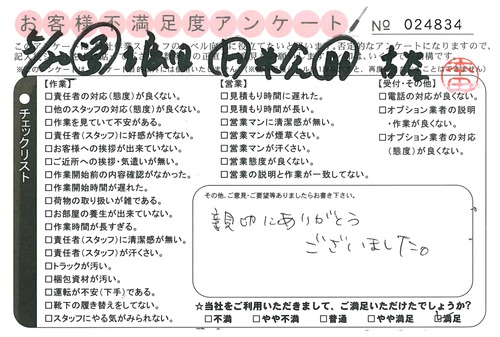 お客様不満足度アンケート
№ 024834
チェックリスト
【作業】
□責任者の対応(態度)が良くない。
□他のスタッフの対応(態度)が良くない。
□作業を見ていて不安がある。
□責任者(スタッフ)に好感が持てない。
□お客様への挨拶が出来ていない。
□ご近所への挨拶・気遣いが無い。
□作業開始前の内容確認がなかった。
□作業開始時間が遅れた。
□荷物の取り扱いが雑である。
□お部屋の養生が出来ていない。
□作業時間が長すぎる。
□責任者(スタッフ)に清潔感が無い。
□責任者(スタッフ)が汗くさい。
□トラックが汚い。
□梱包資材が汚い。
□運転が不安(下手)である。
□靴下の履き替えをしてない。
□スタッフにやる気がみられない。
【営業】
□見積もり時間に遅れた。
□見積もり時間が長い。
□営業マンに清潔感が無い。
□営業マンが煙草くさい。
□営業マンが汗くさい。
□営業態度が良くない。
□営業の説明と作業が一致してない。
【受付・その他】
□電話の対応が良くない。
□オプション業者の説明
・作業が良くない。
□オプション業者の対応
(態度)が良くない。
その他、ご意見・ご要望等ありましたらお書き下さい。
親切にありがとう
ございました。
☆当社をご利用いただきまして、ご満足いただけたでしょうか?
□不満 □やや不満 □普通 □やや満足 □満足